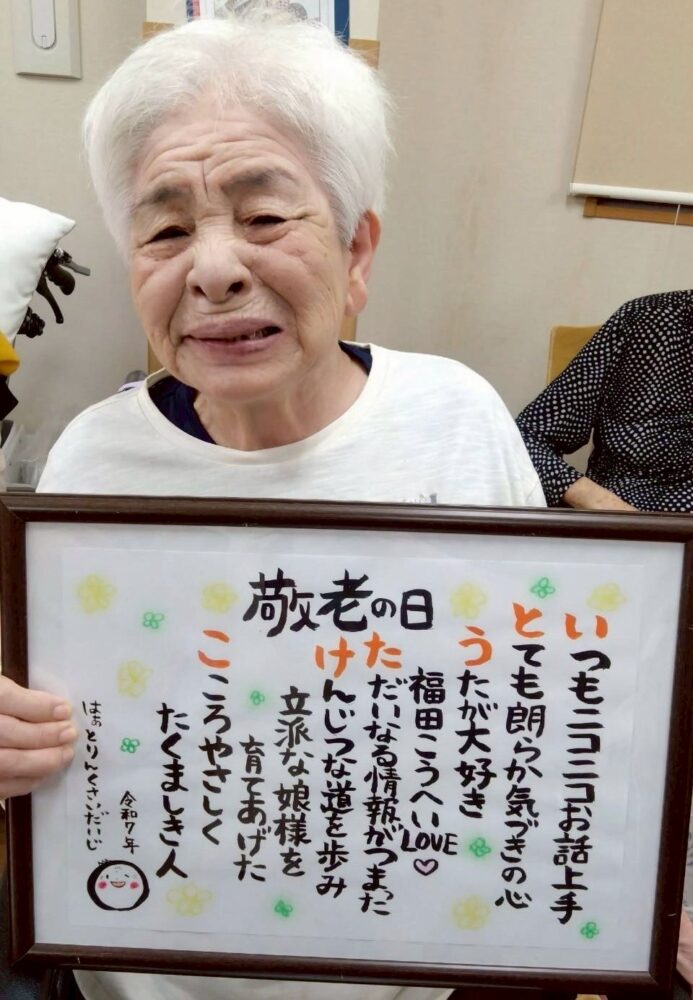 敬老の日
いつもニコニコお話上手
とても朗らか気づきの心
うたが大好き
福田こうへいLOVE♡
ただいなる情報がつまった
けんじつな道を歩み
立派な娘様を
育てあげた
こころやさしく
たくましき人
令和7年
はぁとりんくさいだいじ